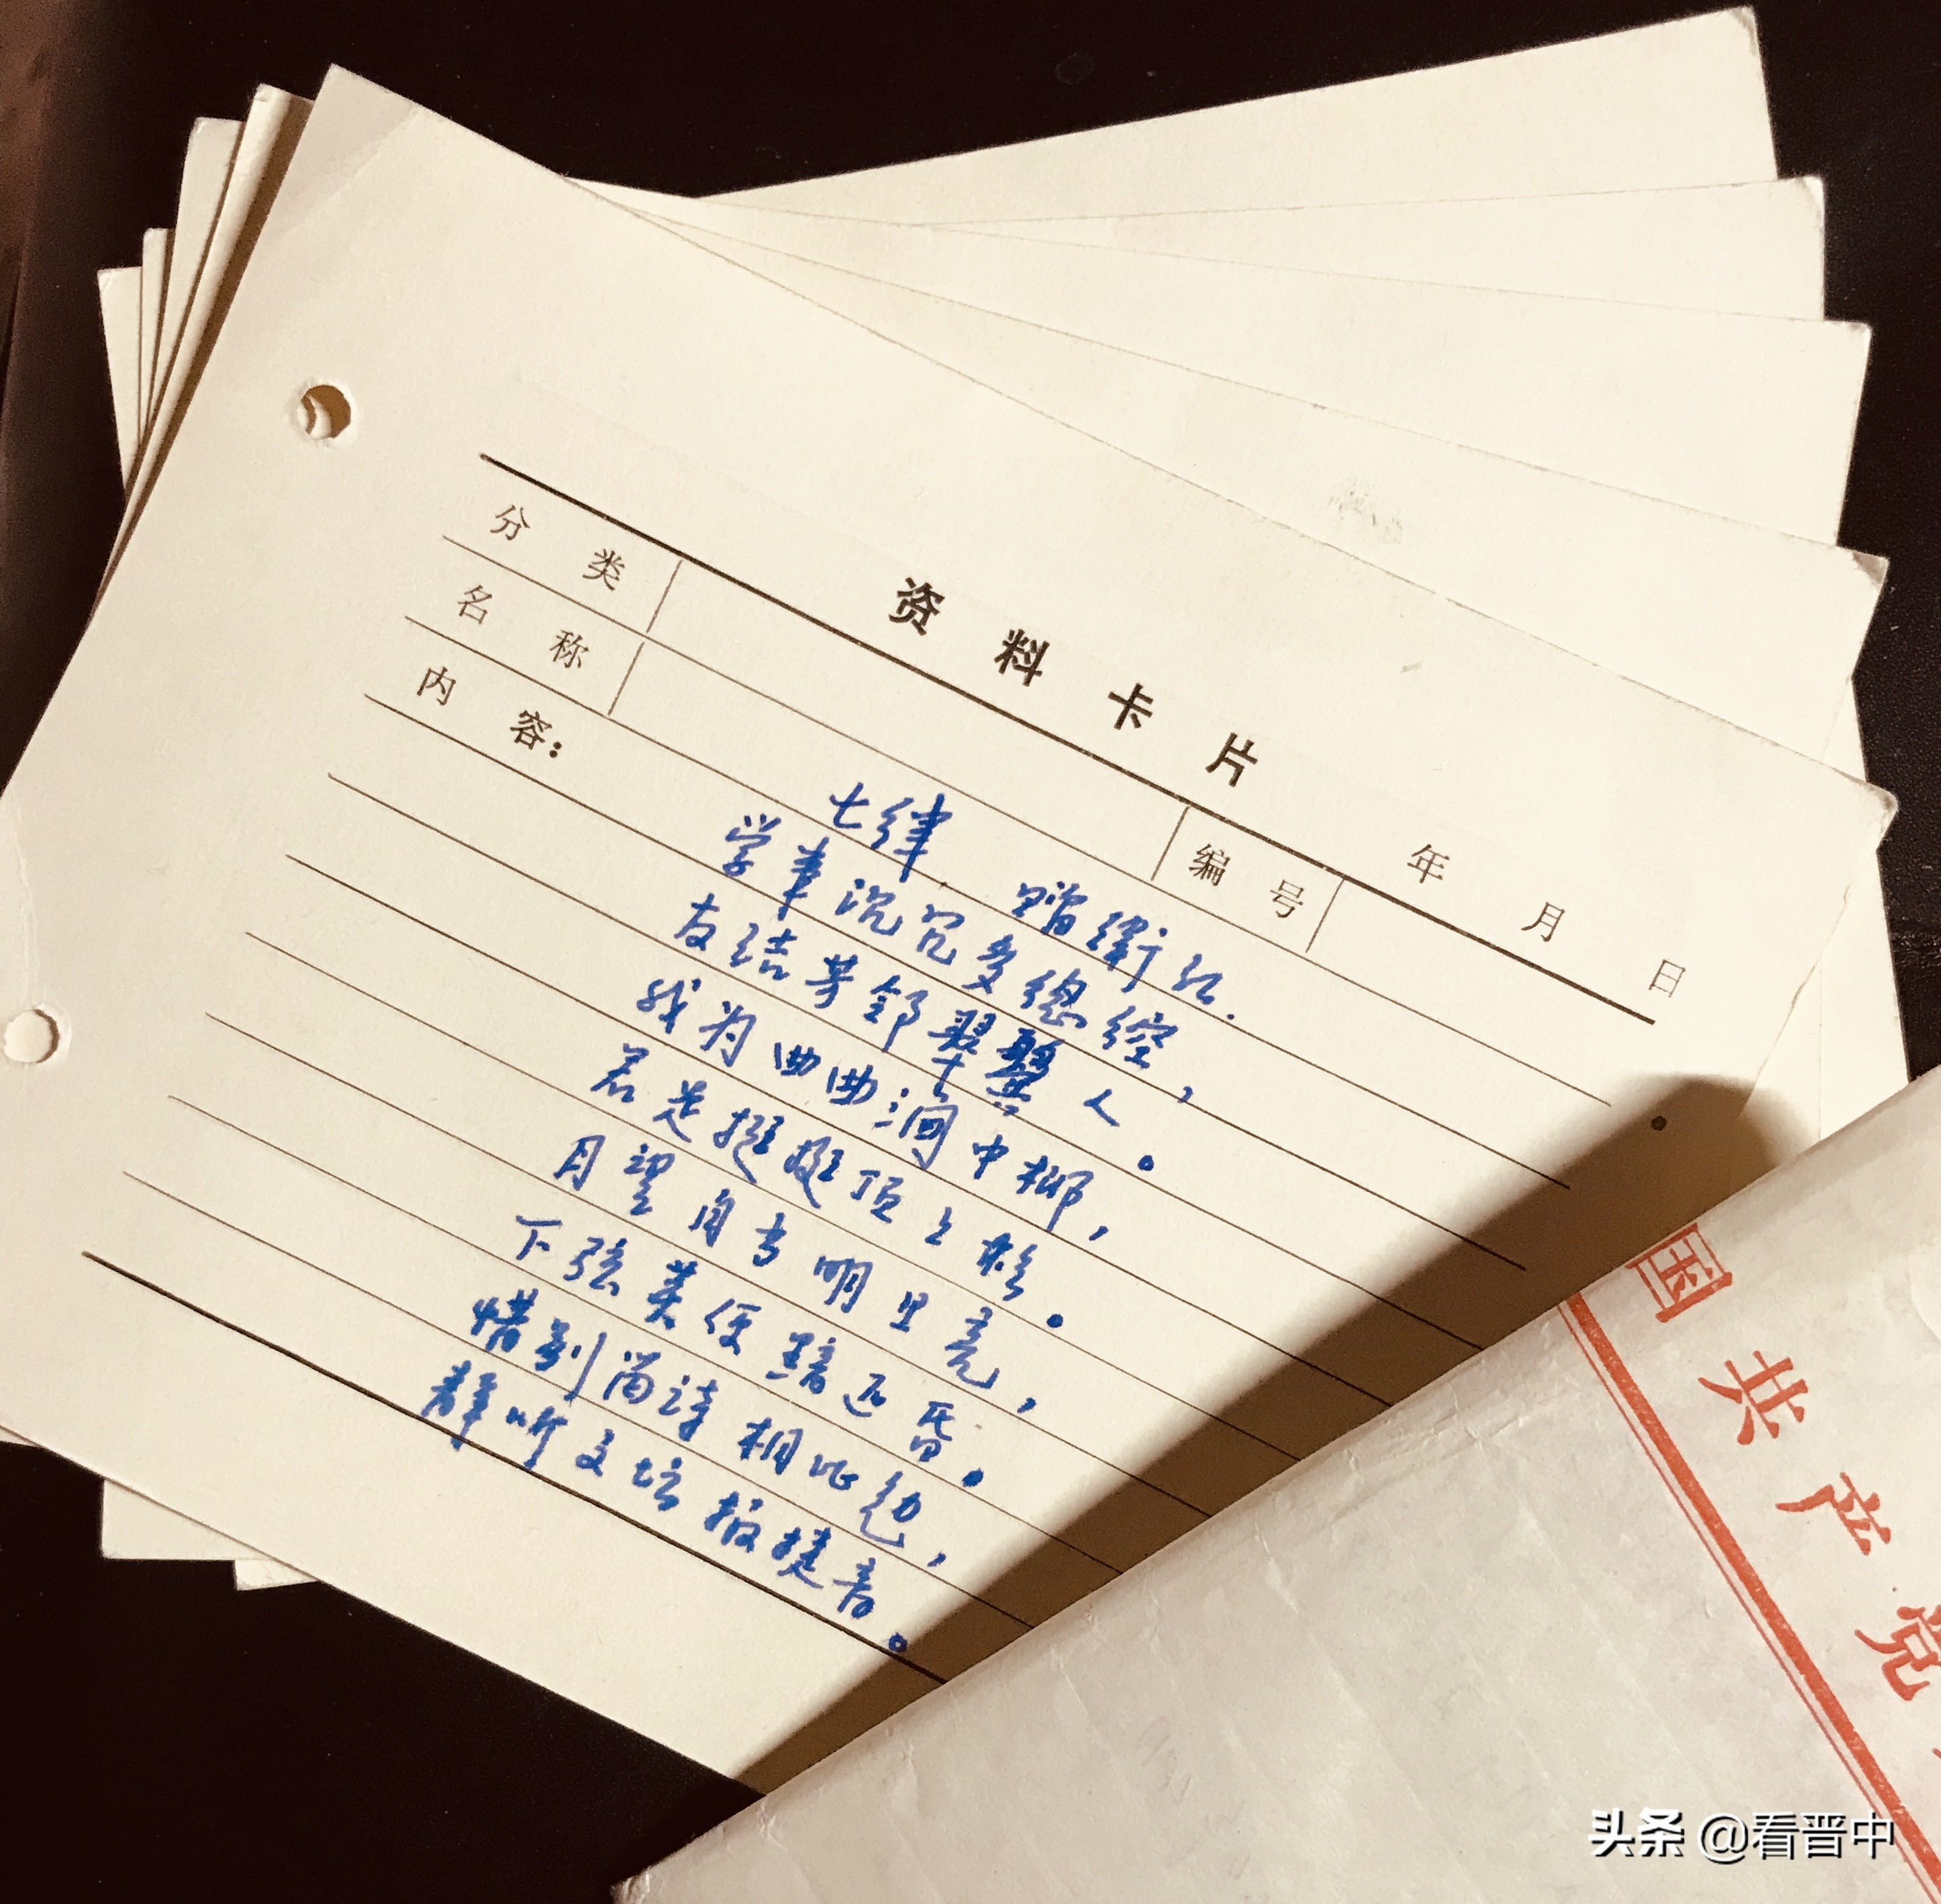 资料卡片
年 月 日
分类
编号
名称
内容:
七律 赠卫红
学聿沉冗多总经,
友结芳邻翠翼人。
我为曲曲涧中柳,
君是挺挺顶上松。
月望自当明里亮,
下弦莫便黯迟昏。
惜别留诗相比勉,
静听文坛报捷音。
国共产党
头条 @看晋中